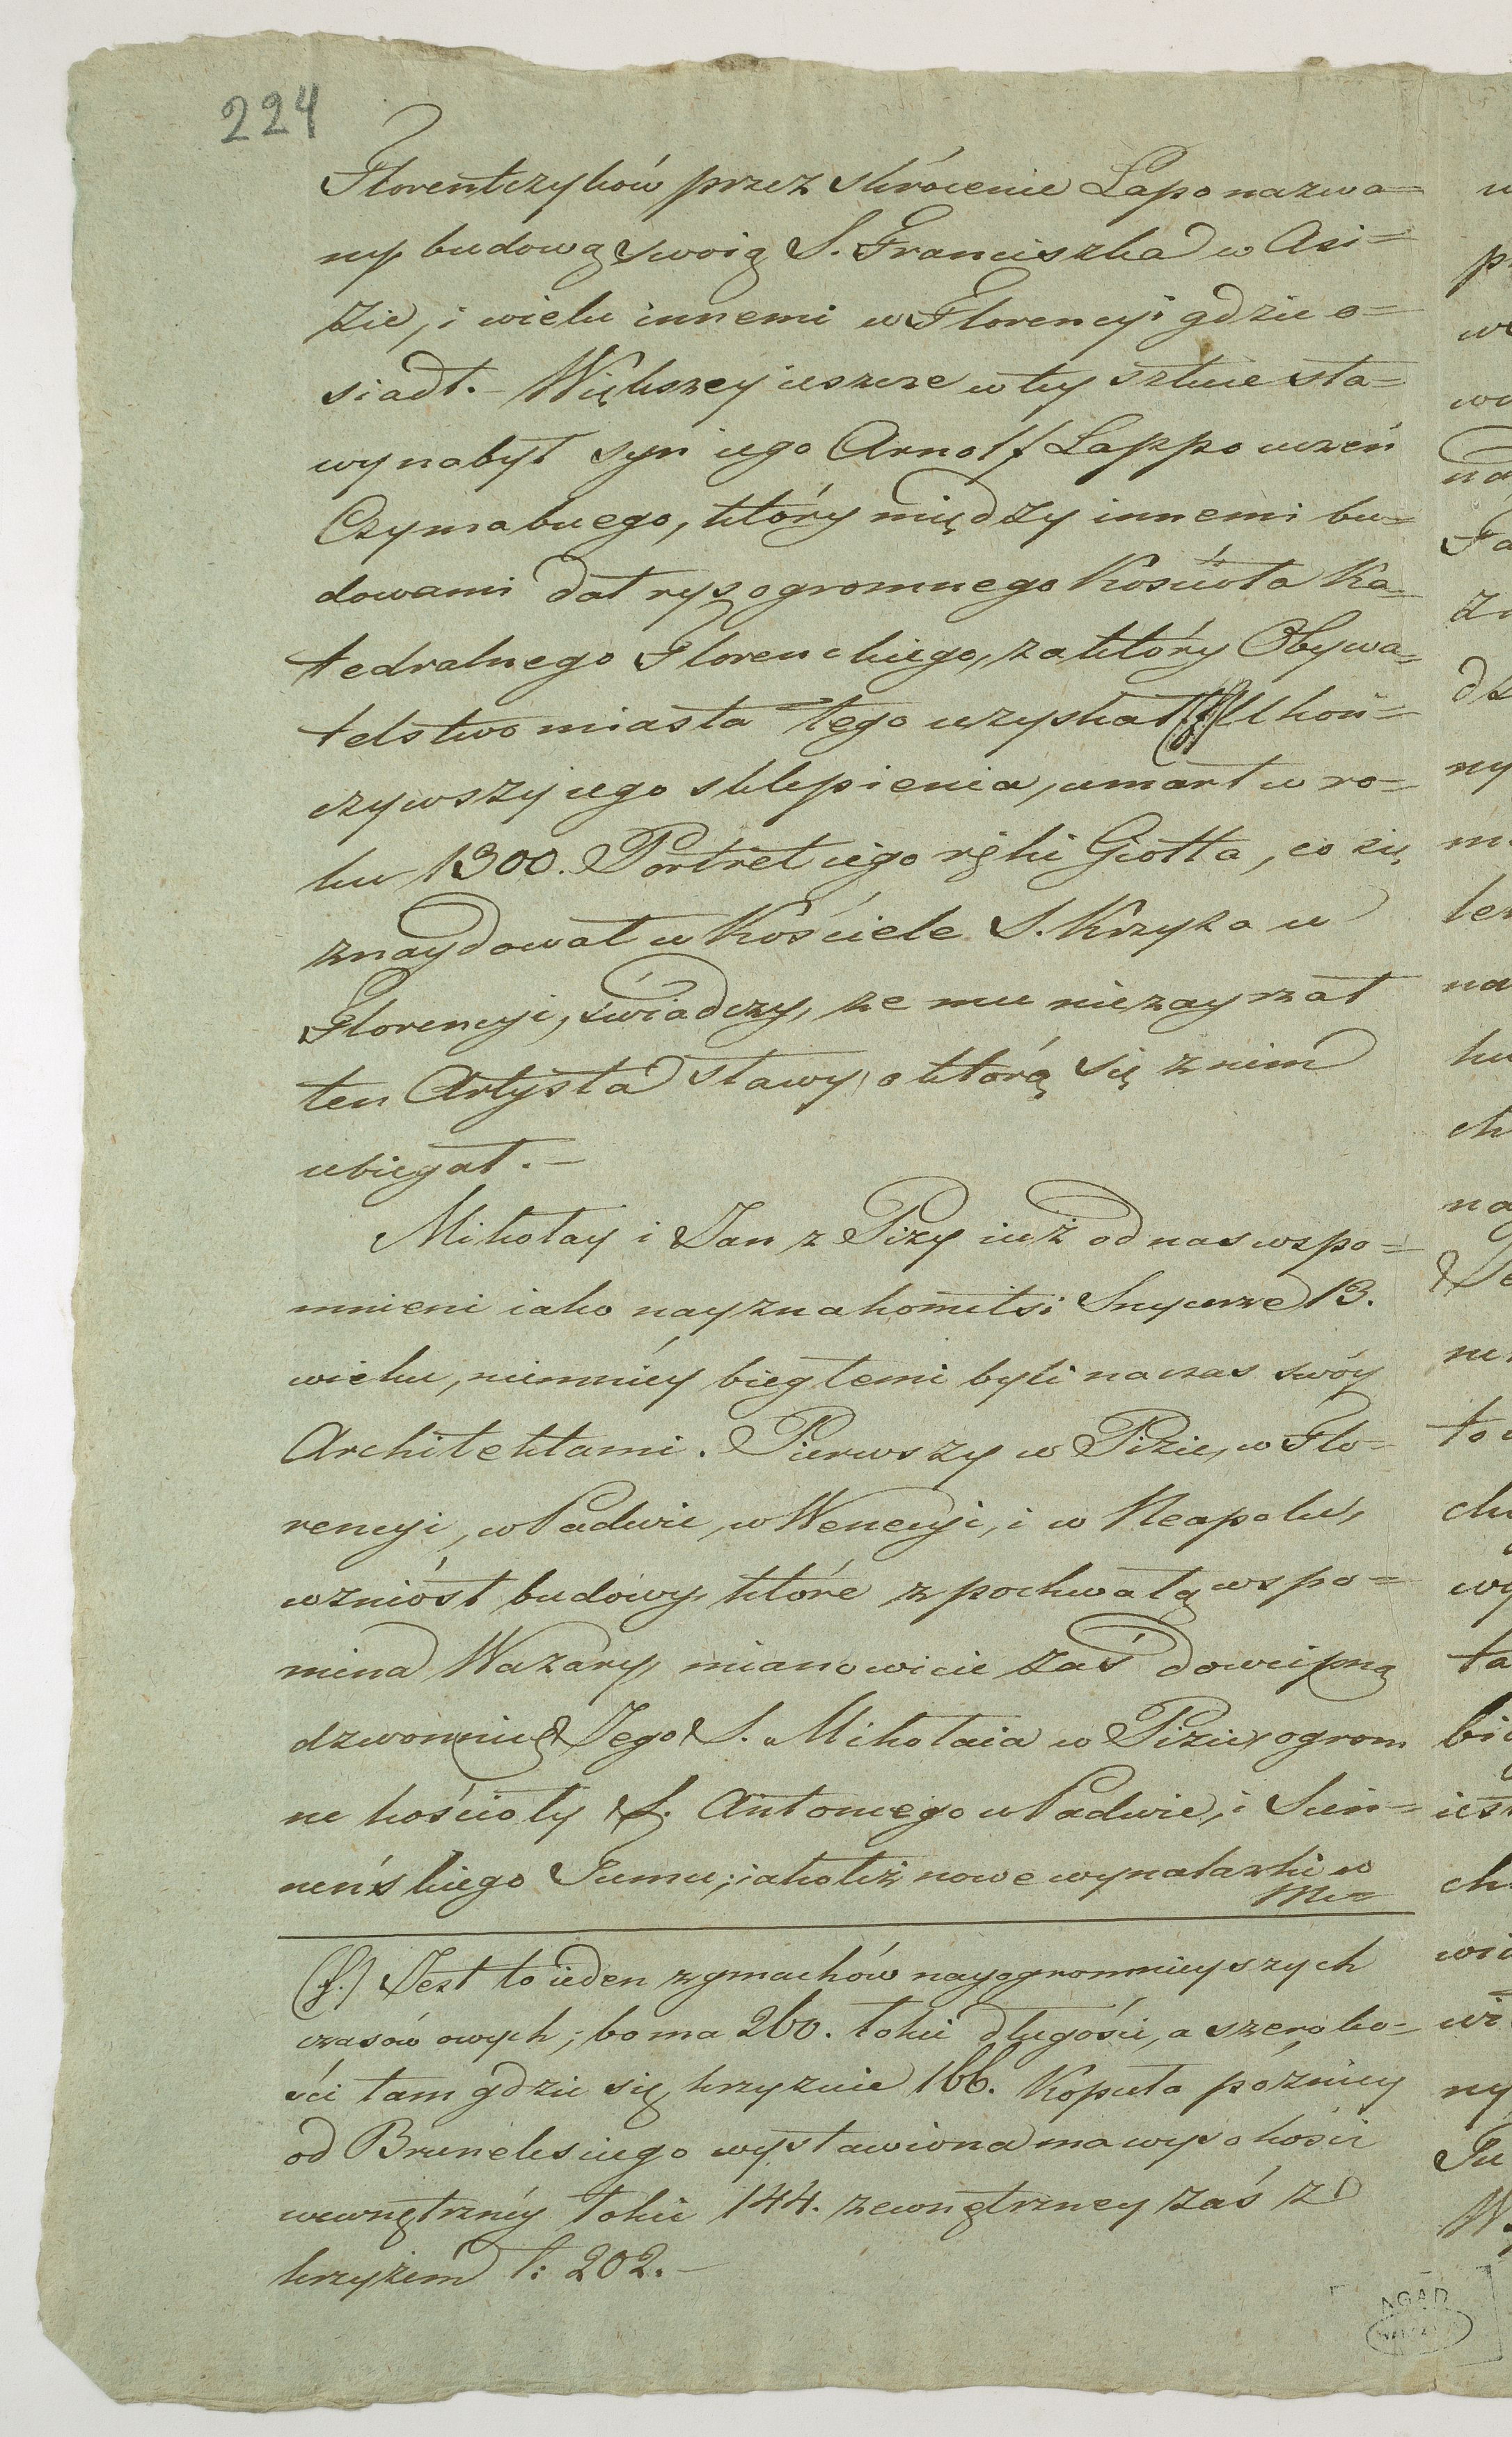 224
Florentczyków przez skrócenie Lapo nazwa=
ny budową swoią S. Franciszka w Asi=
zie, i wielu innemi w Florencyi gdzie o=
siadł. – Większey ieszcze w tey sztuce sła=
wy nabył syn iego Arnolf Lappo uczeń
Czymabuego, który między innemi bu=
dowami dał rys ogromnego Kościoła Ka=
tedralnego Florenckiego, za który Obywa=
telstwo miasta tego uzyskał (f) Ukoń=
czywszy iego sklepienia, umarł w ro=
ku 1300. Portret iego ręki Giotta, co się
znaydował w Kościele S. Krzyża w
Florencyi, świadczy, że mu niezayrzał
ten Artysta sławy, o którą się z nim
ubiegał. –
Mikołay i Jan z Pizy iuż od nas wspo=
mnieni iako nayznakomitsi Snycerze 13.
wieku, niemniéy biegłemi byli na czas swóy
Architektami. Pierwszy w Pizie, w Flo=
rencyi, w Padwie, w Wenecyi, i w Neapolu,
wzniósł budowy, które z pochwałą wspo=
mina Wazary, mianowicie zaś dowcipną
dzwonnicę Jego S. Mikołaia w Pizie, ogrom
ne kościoły S. Antoniego w Padwie, i Sien=
neńskiego Tumu; iakoteż nowe wynalazki w
Me=
(f.) Jest to ieden z gmachów nayogromnieyszych
czasów owych; bo ma 260. łokci długości, a szeroko=
ści tam gdzie się krzyżuie 166. Kopuła późniey
od Bruneleskiego wystawiona ma wysokości
wewnętrznéy łokci 144. zewnętrzney zaś z
krzyżem ł: 202. –
AGAD